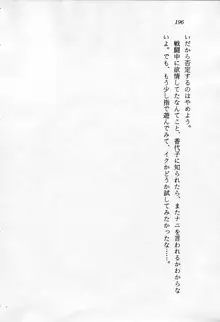 196
いだから否定するのはやめよう。
戦闘中に欲情してたなんてこと、香代子に知られたら、またナニを言われるかわからな
いよ。でも、もう少し指で遊んでみて、イクかどうか試してみたかったな……。